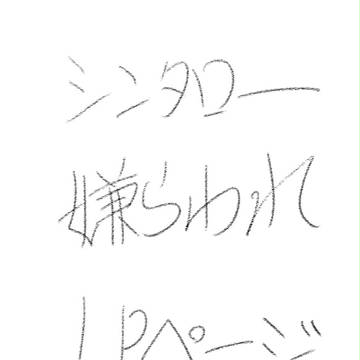 シンタロー
嫌われ
1Pページ